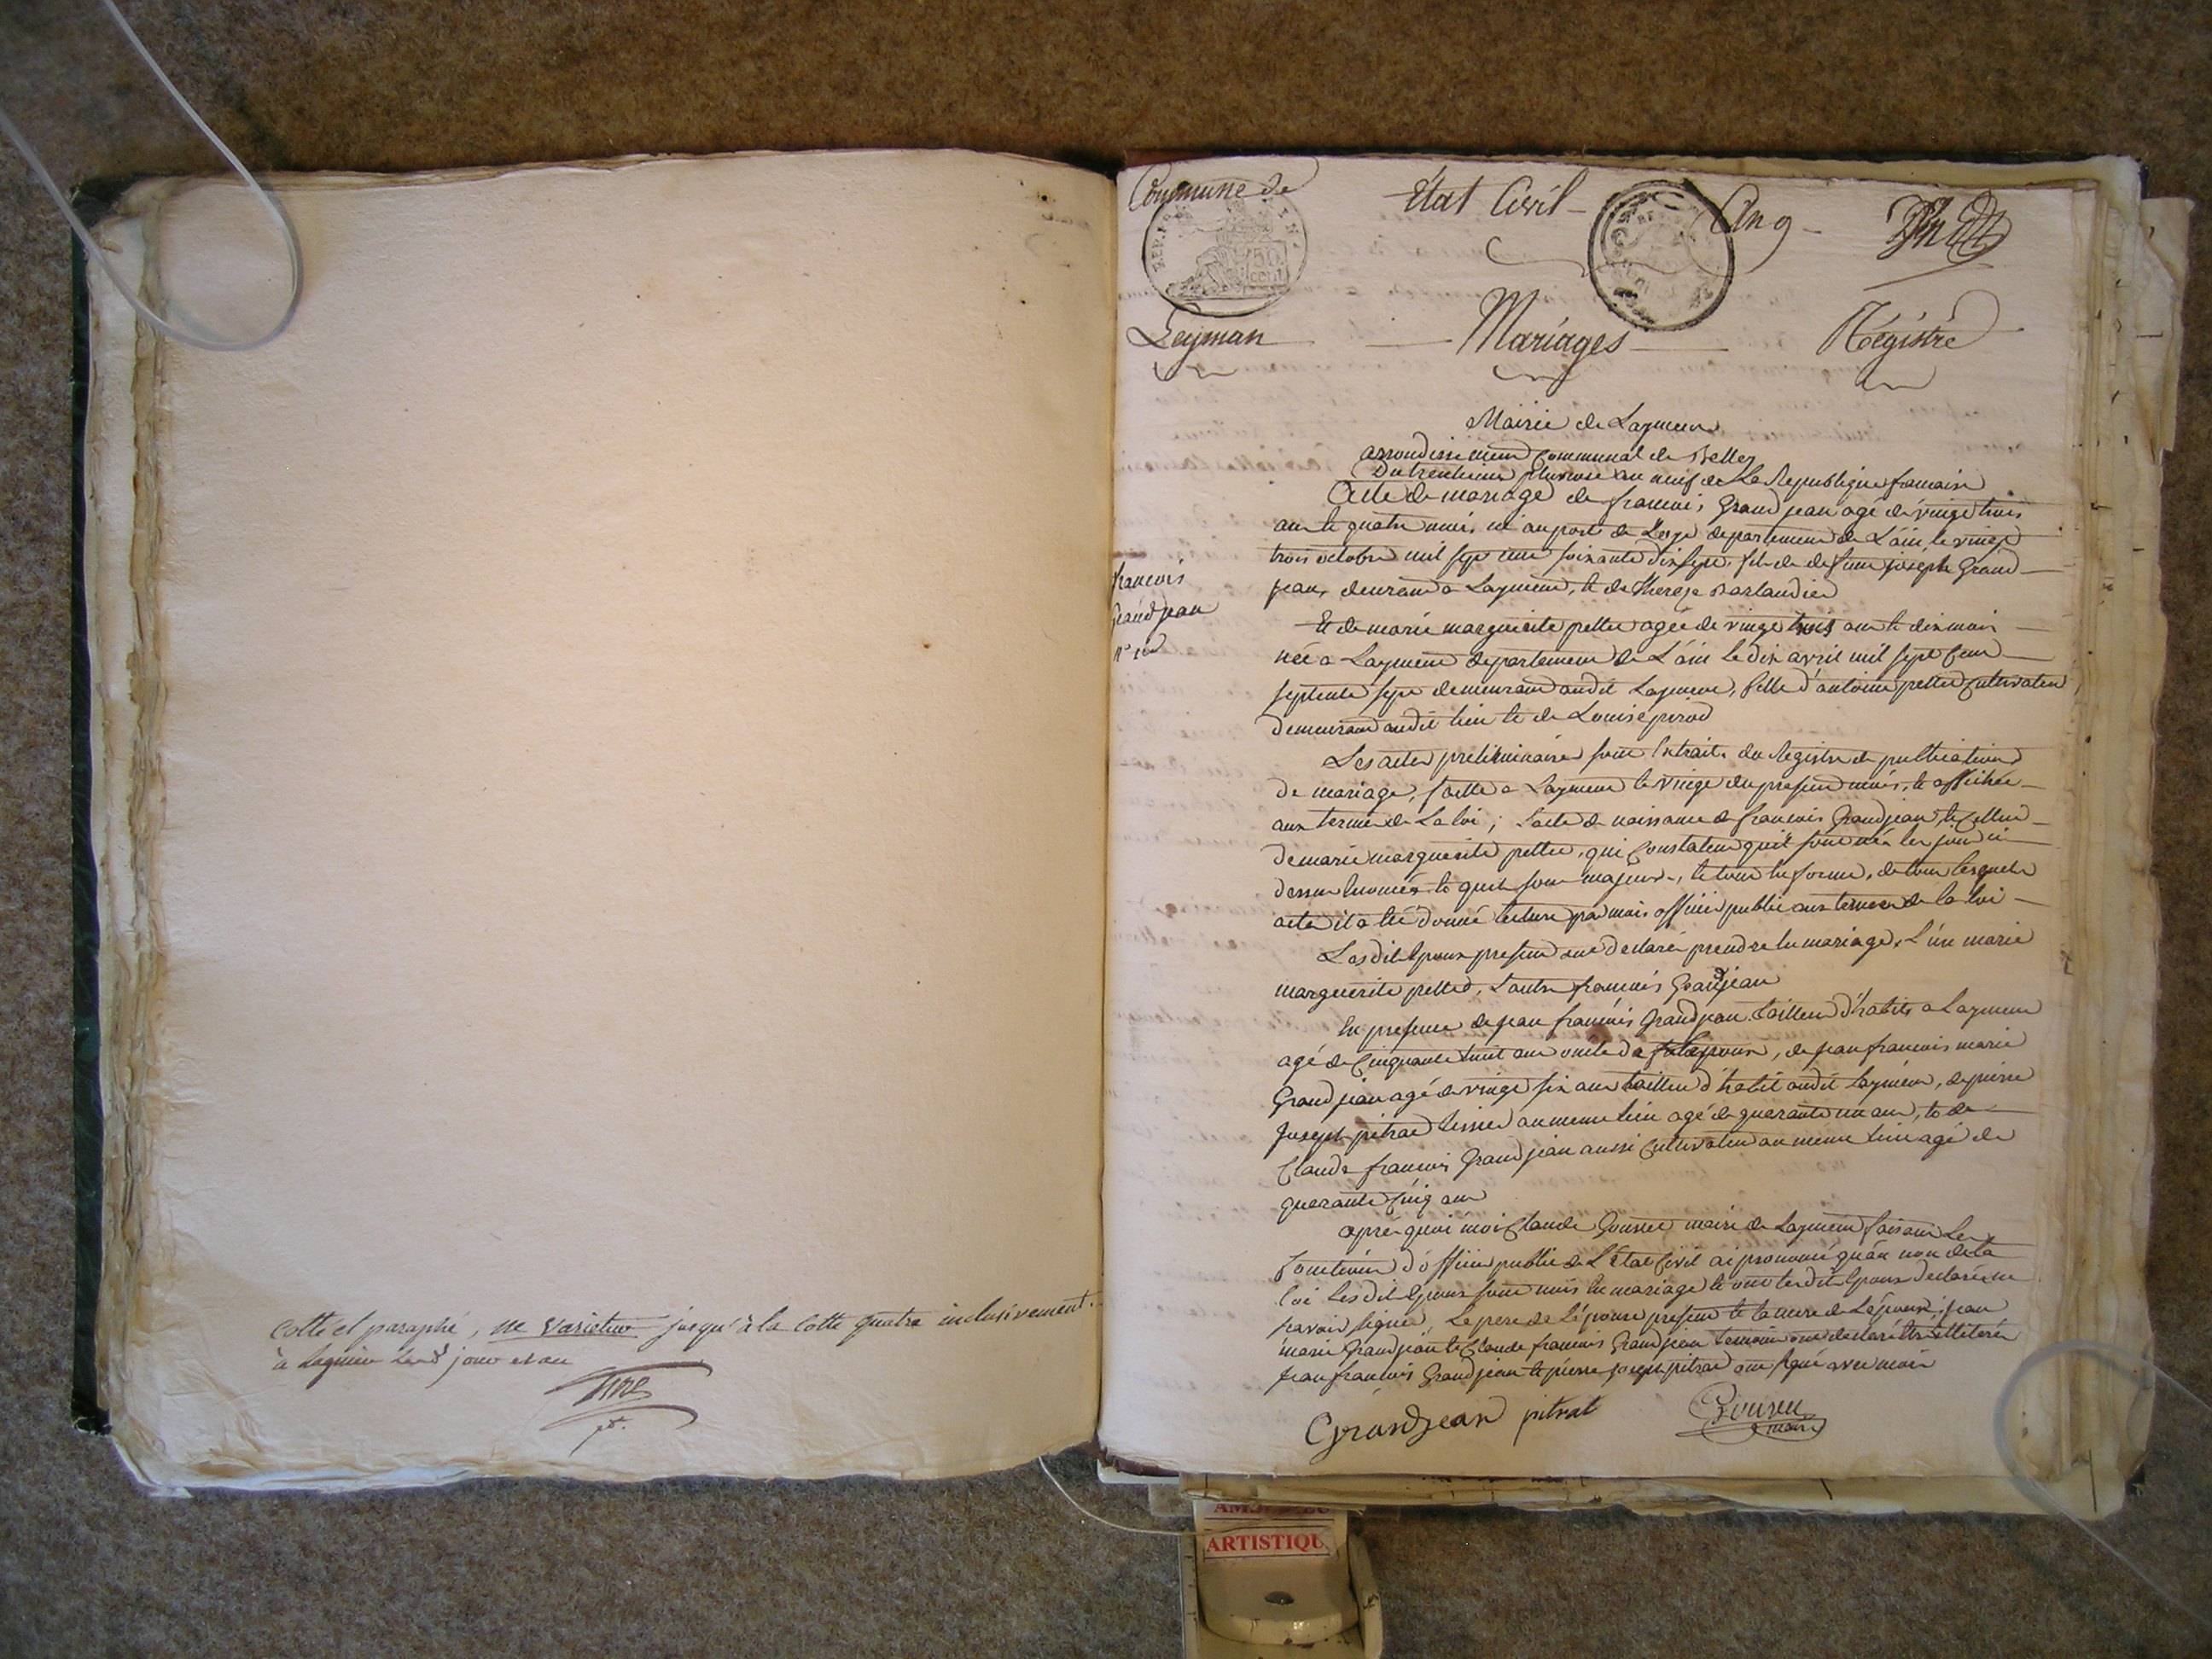 cotté et paraphé, ne varietur jusqu'à la cotte quatre inclusivement.
à Lagnieu jour et an
Commune de
État Civil
An 9
REP. FRA.
50 cent
Leyman
Mariages
Régistre
Mairie de Laymens
arrondissement Communal de Belley
Du trentieme pluviose an neuf de La Republique francaise
Acte de mariage de francois Grand jean agé de vingt trois
ans et quatre mois, né au port de departement de L'ain le vingt
trois octobre mil sept cent soixante dix sept, fils de defunt joseph Grand
jean, demeurant a Laymens, et de thereze Barlandier
francois
Grandjean
Et de marie marguerite pettet agée de vingt trois ans et dix mois
née a Laymens departement de L'ain le dix avril mil sept cent
septente sept demeurant audit Laymens, fille d'antoine pettet cultivateur
demeurant audit lieu et de Louise perod
Les actes preliminaires sont Extraits du Registre de publications
de mariage, faitte a Laymens le vingt du present mois, et affichée
aux termes de La loi; L'acte de naissance de francois Grandjean, et celluy
de marie marguerite pettet, qui constatent quils sont nés les jour ci
dessus enoncés et quils sont majeurs, le tout en forme, de tous lesquels
actes il a été donné lecture par moi officier public aux termes de la loi
Lesdits Epoux present ont declaré prendre en mariage, L'un marie
marguerite pettet, L'autre francois Grandjean
En presence de jean francois Grandjean tailleur d'habits a Laymens
agé de Cinquante huit ans oncle de Epoux, de jean francois marie
Grand jean agé de vingt six ans tailleur d'habit audit Laymens, de pierre
Joseph pitrat tissier au meme lieu agé de quarante un ans, et de
Claude francois Grandjean aussi Cultivateur au meme lieu agé de
quarante Cinq ans
apres quoi moi Claude Gousset maire de Laymens faisant Les
fonctions d'officier public de L'état Civil ai prononcé qu'au nom de la
loi Lesdits Epoux sont unis en mariage et ont lesdits Epoux declaré ne
savoir signer, Le pere de L'épouse present et la mere de L'époux, jean
marie Grandjean et Claude francois Grandjean temoin ont declaré etre illiterés
jean francois Grandjean et pierre joseph pitrat ont signé avec moi
Grandjean pitrat
maire
ARTISTIQU